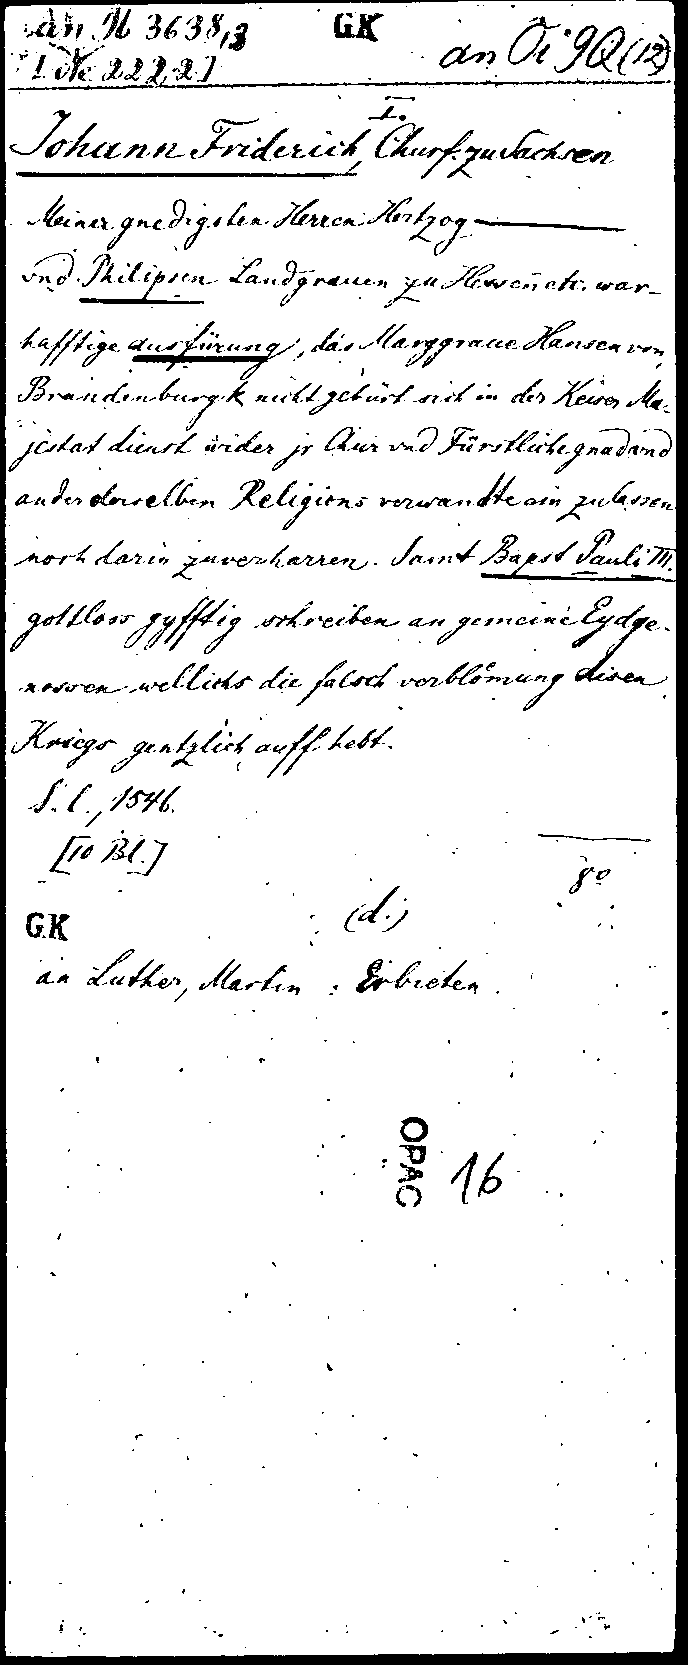 an Nb 3638,3
GK
an Oi 9Q (12)
[Nc 222,2]
I.
Johann Friderich, Churf. zu Sachsen
Meiner gnedigsten Herren Hertzog ———
vnd Philipsen Landgrauen zu Hessen etc. war-
hafftige ausfürung, das Marggraue Hansen von
Brandenburgk nicht gebürt sich in der Keiser Ma-
jestat dienst wider jr Chur vnd Fürstliche gnad vnd
ander derselben Religions verwandte ein zulassen
noch darin zuverharren. Samt Bapst Pauli III.
gottloss gyfftig schreiben an gemeine Eydge-
nossen wellichs die falsch verblömung disen
Kriegs gentzlich auff hebt.
S. l., 1546.
[10 Bl.]
8°
GK
(d.)
an Luther, Martin : Erbieten.
OPAC 16